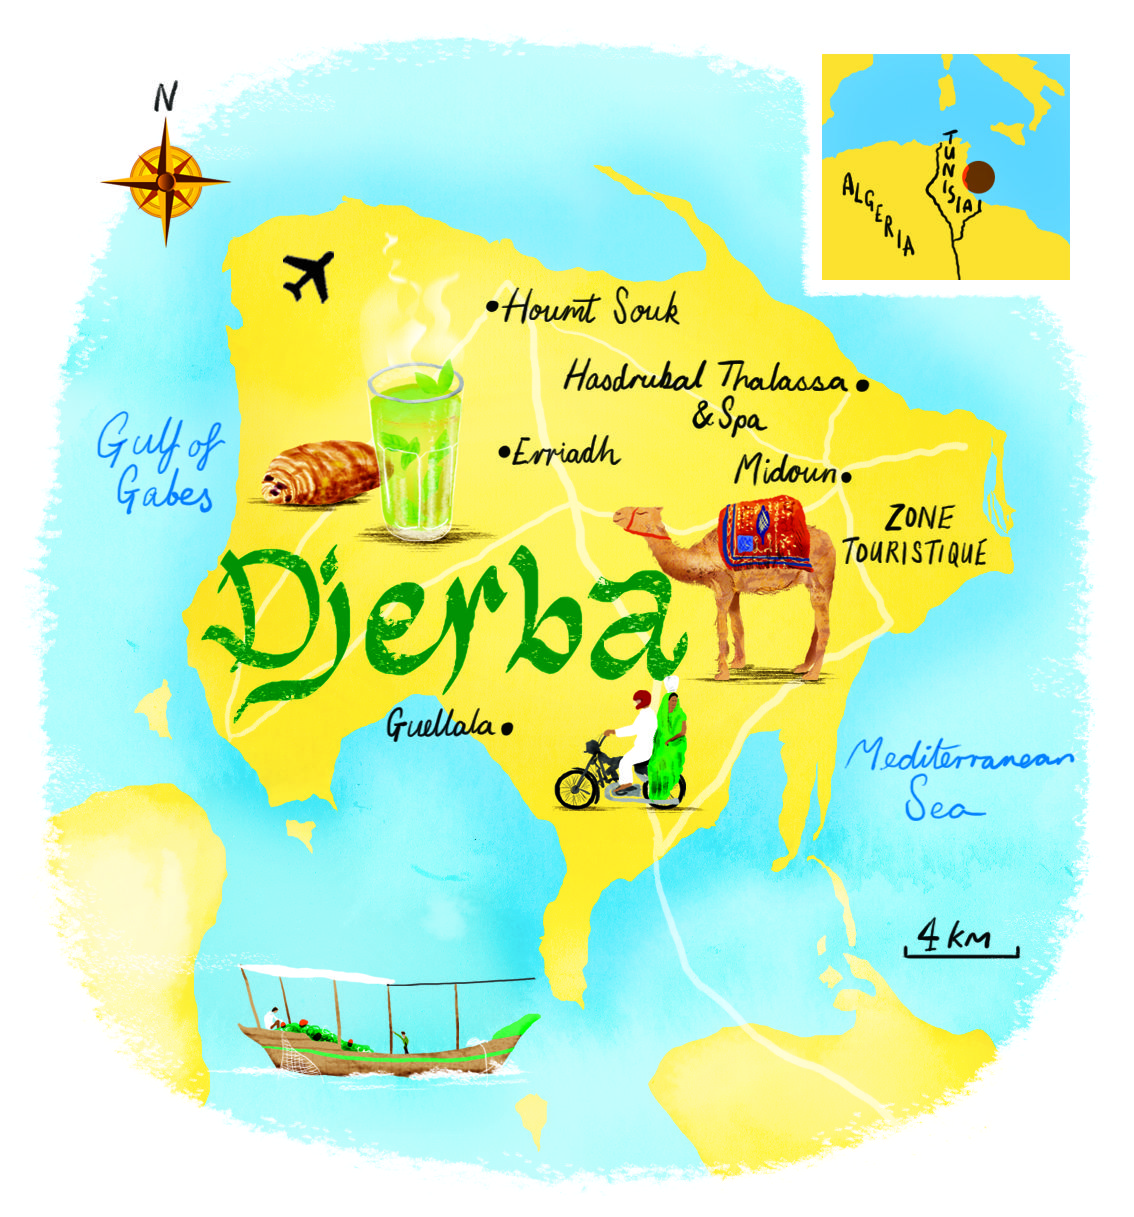 N
TUNISIA
ALGERIA
Houmt Souk
Hasdrubal Thalassa
& Spa
Gulf of
Gabes
Erriadh
Midoun
ZONE
TOURISTIQUE
Djerba
Guellala
Mediterranean
Sea
4 KM